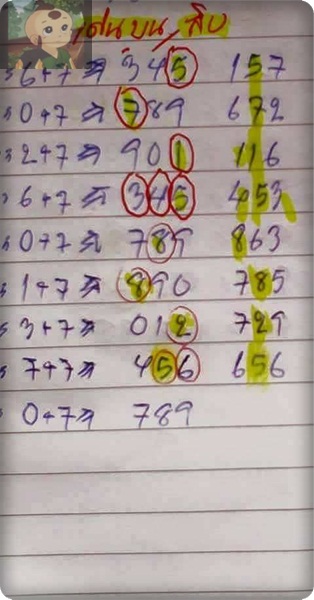 เด่นบน สิบ
6+7⇒ 345 157
0+7⇒ 789 672
2+7⇒ 901 116
6+7⇒ 345 453
0+7⇒ 789 863
1+7⇒ 890 785
3+7⇒ 012 729
7+7⇒ 456 656
0+7⇒ 789